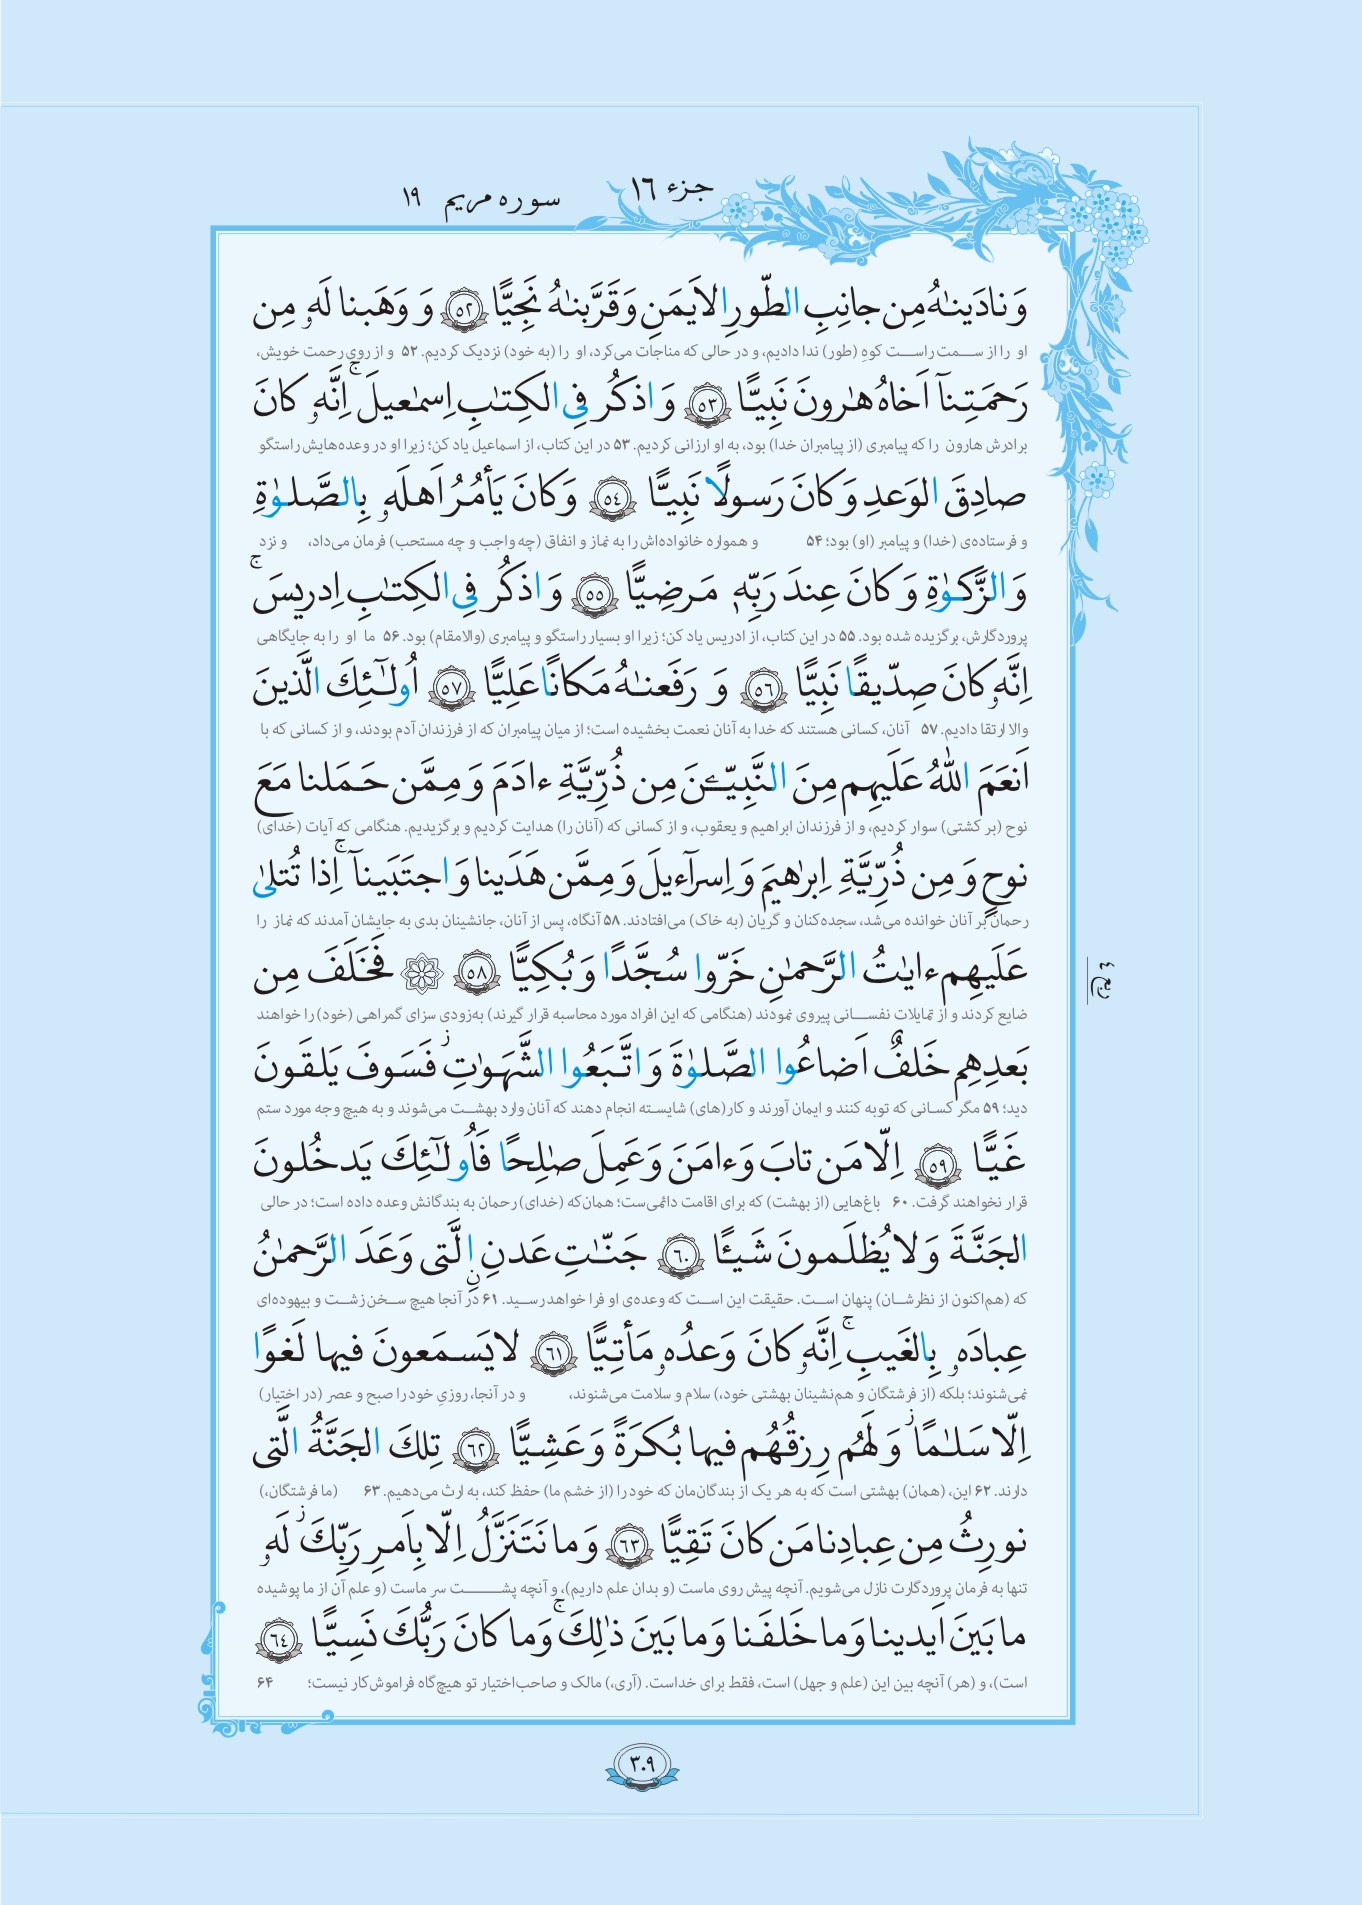 جزء ١٦
سوره مريم ١٩
وَ نادَينـٰهُ مِن جانِبِ الطّورِ الاَيمَنِ وَ قَرَّبنـٰهُ نَجِيًّا ٥٢ وَ وَهَبنا لَهۥ مِن
او را از سمت راست کوهِ (طور) ندا دادیم، و در حالی که مناجات می‌کرد، او را (به خود) نزدیک کردیم. ۵۲ و از روی رحمت خویش،
رَحمَتِنآ اَخاهُ هـٰرونَ نَبِيًّا ٥٣ وَ اذكُر فِى الكِتـٰبِ اِسمـٰعيلَ ۚ اِنَّهۥ كانَ
برادرش هارون را که پیامبری (از پیامبران خدا) بود، به او ارزانی کردیم. ۵۳ در این کتاب، از اسماعیل یاد کن؛ زیرا او در وعده‌هایش راستگو
صادِقَ الوَعدِ وَ كانَ رَسولًا نَبِيًّا ٥٤ وَ كانَ يَأمُرُ اَهلَهۥ بِالصَّلوٰةِ
و فرستاده‌ی (خدا) و پیامبر (او) بود؛ ۵۴ و همواره خانواده‌اش را به نماز و انفاق (چه واجب و چه مستحب) فرمان می‌داد، و نزد
وَ الزَّكوٰةِ وَ كانَ عِندَ رَبِّهۦ مَرضِيًّا ٥٥ وَ اذكُر فِى الكِتـٰبِ اِدريسَ ۚ
پروردگارش، برگزیده شده بود. ۵۵ در این کتاب، از ادریس یاد کن؛ زیرا او بسیار راستگو و پیامبری (والامقام) بود. ۵۶ ما او را به جایگاهی
اِنَّهۥ كانَ صِدّيقًا نَبِيًّا ٥٦ وَ رَفَعنـٰهُ مَكانًا عَلِيًّا ٥٧ اُولـٰٓئِكَ الَّذينَ
والا ارتقا دادیم. ۵۷ آنان، کسانی هستند که خدا به آنان نعمت بخشیده است؛ از میان پیامبران که از فرزندان آدم بودند، و از کسانی که با
اَنعَمَ اللّٰهُ عَلَيهِم مِنَ النَّبِيّـۧنَ مِن ذُرِّيَّةِ ءادَمَ وَ مِمَّن حَمَلنا مَعَ
نوح (بر کشتی) سوار کردیم، و از فرزندان ابراهیم و یعقوب، و از کسانی که (آنان را) هدایت کردیم و برگزیدیم. هنگامی که آیات (خدای)
نوحٍ وَ مِن ذُرِّيَّةِ اِبرٰهيمَ وَ اِسرآءيلَ وَ مِمَّن هَدَينا وَ اجتَبَينآ ۚ اِذا تُتلىٰ
رحمان بر آنان خوانده می‌شد، سجده‌کنان و گریان (به خاک) می‌افتادند. ۵۸ آنگاه، پس از آنان، جانشینان بدی به جایشان آمدند که نماز را
عَلَيهِم ءايـٰتُ الرَّحمـٰنِ خَرّوا سُجَّدًا وَ بُكِيًّا ٥٨ فَخَلَفَ مِن
ضایع کردند و از تمایلات نفسانی پیروی نمودند (هنگامی که این افراد مورد محاسبه قرار گیرند) به‌زودی سزای گمراهی (خود) را خواهند
ربع ٤
بَعدِهِم خَلفٌ اَضاعُوا الصَّلوٰةَ وَ اتَّبَعُوا الشَّهَوٰتِ ۖ فَسَوفَ يَلقَونَ
دید؛ ۵۹ مگر کسانی که توبه کنند و ایمان آورند و کار(های) شایسته انجام دهند که آنان وارد بهشت می‌شوند و به هیچ وجه مورد ستم
غَيًّا ٥٩ اِلّا مَن تابَ وَ ءامَنَ وَ عَمِلَ صـٰلِحًا فَاُولـٰٓئِكَ يَدخُلونَ
قرار نخواهند گرفت. ۶۰ باغ‌هایی (از بهشت) که برای اقامت دائمی‌ست؛ همان‌که (خدای) رحمان به بندگانش وعده داده است؛ در حالی
الجَنَّةَ وَ لا يُظلَمونَ شَيـًٔا ٦٠ جَنّـٰتِ عَدنٍ الَّتى وَعَدَ الرَّحمـٰنُ
که (هم‌اکنون از نظرشان) پنهان است. حقیقت این است که وعده‌ی او فرا خواهد رسید. ۶۱ در آنجا هیچ سخن زشت و بیهوده‌ای
عِبادَهۥ بِالغَيبِ ۚ اِنَّهۥ كانَ وَعدُهۥ مَأتِيًّا ٦١ لا يَسمَعونَ فيها لَغوًا
نمی‌شنوند؛ بلکه (از فرشتگان و هم‌نشینان بهشتی خود،) سلام و سلامت می‌شنوند، و در آنجا، روزیِ خود را صبح و عصر (در اختیار)
اِلّا سَلـٰمًا ۖ وَ لَهُم رِزقُهُم فيها بُكرَةً وَ عَشِيًّا ٦٢ تِلكَ الجَنَّةُ الَّتى
دارند. ۶۲ این، (همان) بهشتی است که به هر یک از بندگان‌مان که خود را (از خشم ما) حفظ کند، به ارث می‌دهیم. ۶۳ (ما فرشتگان،)
نورِثُ مِن عِبادِنا مَن كانَ تَقِيًّا ٦٣ وَ ما نَتَنَزَّلُ اِلّا بِاَمرِ رَبِّكَ ۖ لَهۥ
تنها به فرمان پروردگارت نازل می‌شویم. آنچه پیش روی ماست (و بدان علم داریم)، و آنچه پشت سر ماست (و علم آن از ما پوشیده
ما بَينَ اَيدينا وَ ما خَلفَنا وَ ما بَينَ ذٰلِكَ ۚ وَ ما كانَ رَبُّكَ نَسِيًّا ٦٤
است)، و (هر) آنچه بین این (علم و جهل) است، فقط برای خداست. (آری،) مالک و صاحب‌اختیار تو هیچ‌گاه فراموش‌کار نیست؛ ۶۴
٣٠٩